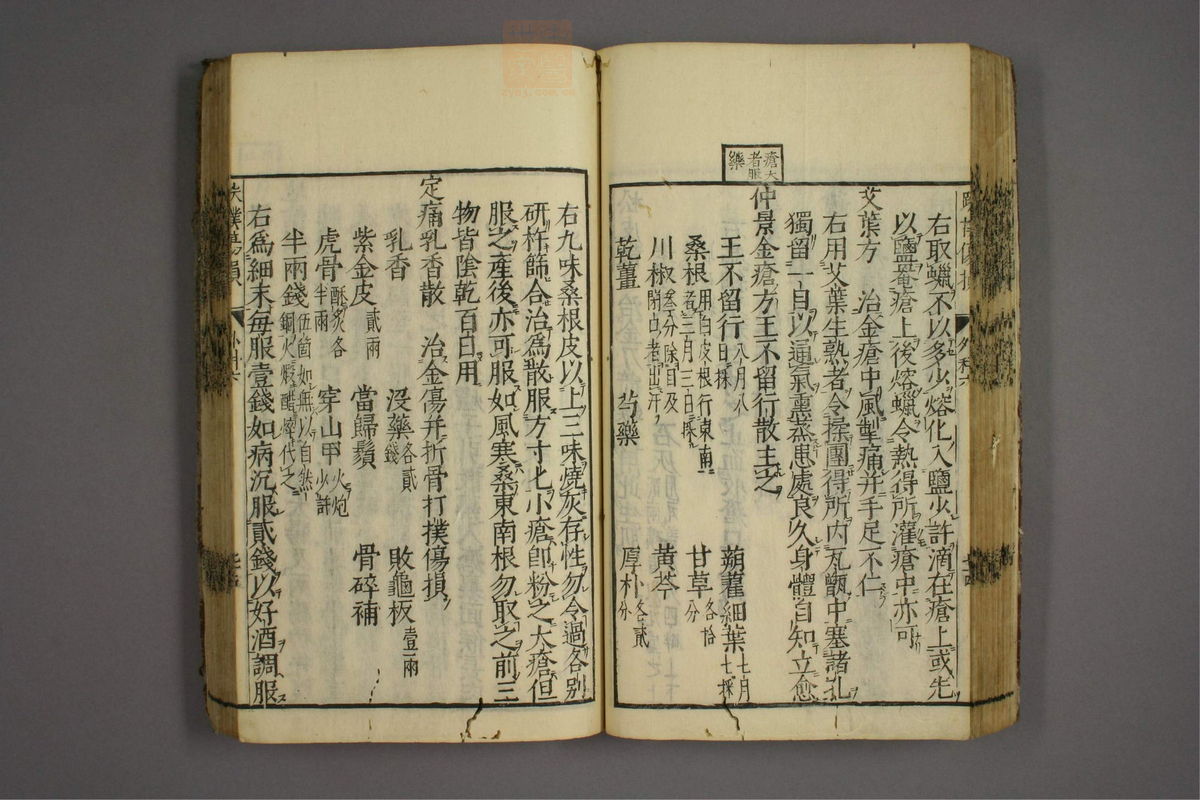 瘡大
者服
藥
右取蠟不以多少熔化入鹽少許滴在瘡上或先
以鹽菴瘡上後熔蠟令熱得所灌瘡中亦可
艾葉方　治金瘡中風掣痛并手足不仁
右用艾葉生熟者令揉團得所內瓦甑中塞諸孔
獨留一目以通氣熏蒸患處良久身體自知立愈
仲景金瘡方王不留行散主之
王不留行八月八日採　蒴藋細葉七月七採
桑根用白皮根行東南者三月三日採　甘草各拾分
川椒叁分除目及閉口者出汗　黃芩
乾薑　芍藥　厚朴各貳分
右九味桑根皮以上三味燒灰存性勿令過各別
研杵篩合治爲散服方寸匕小瘡卽粉之大瘡但
服之產後亦可服如風寒桑東南根勿取之前三
物皆陰乾百日用
定痛乳香散　治金傷并折骨打撲傷損
乳香　沒藥各貳錢　敗龜板壹兩
紫金皮貳兩　當歸鬚　骨碎補
虎骨酥炙各半兩　穿山甲火炮少許
半兩錢伍箇如無以自然銅火煅醋淬代之
右爲細末每服壹錢如病沉服貳錢以好酒調服